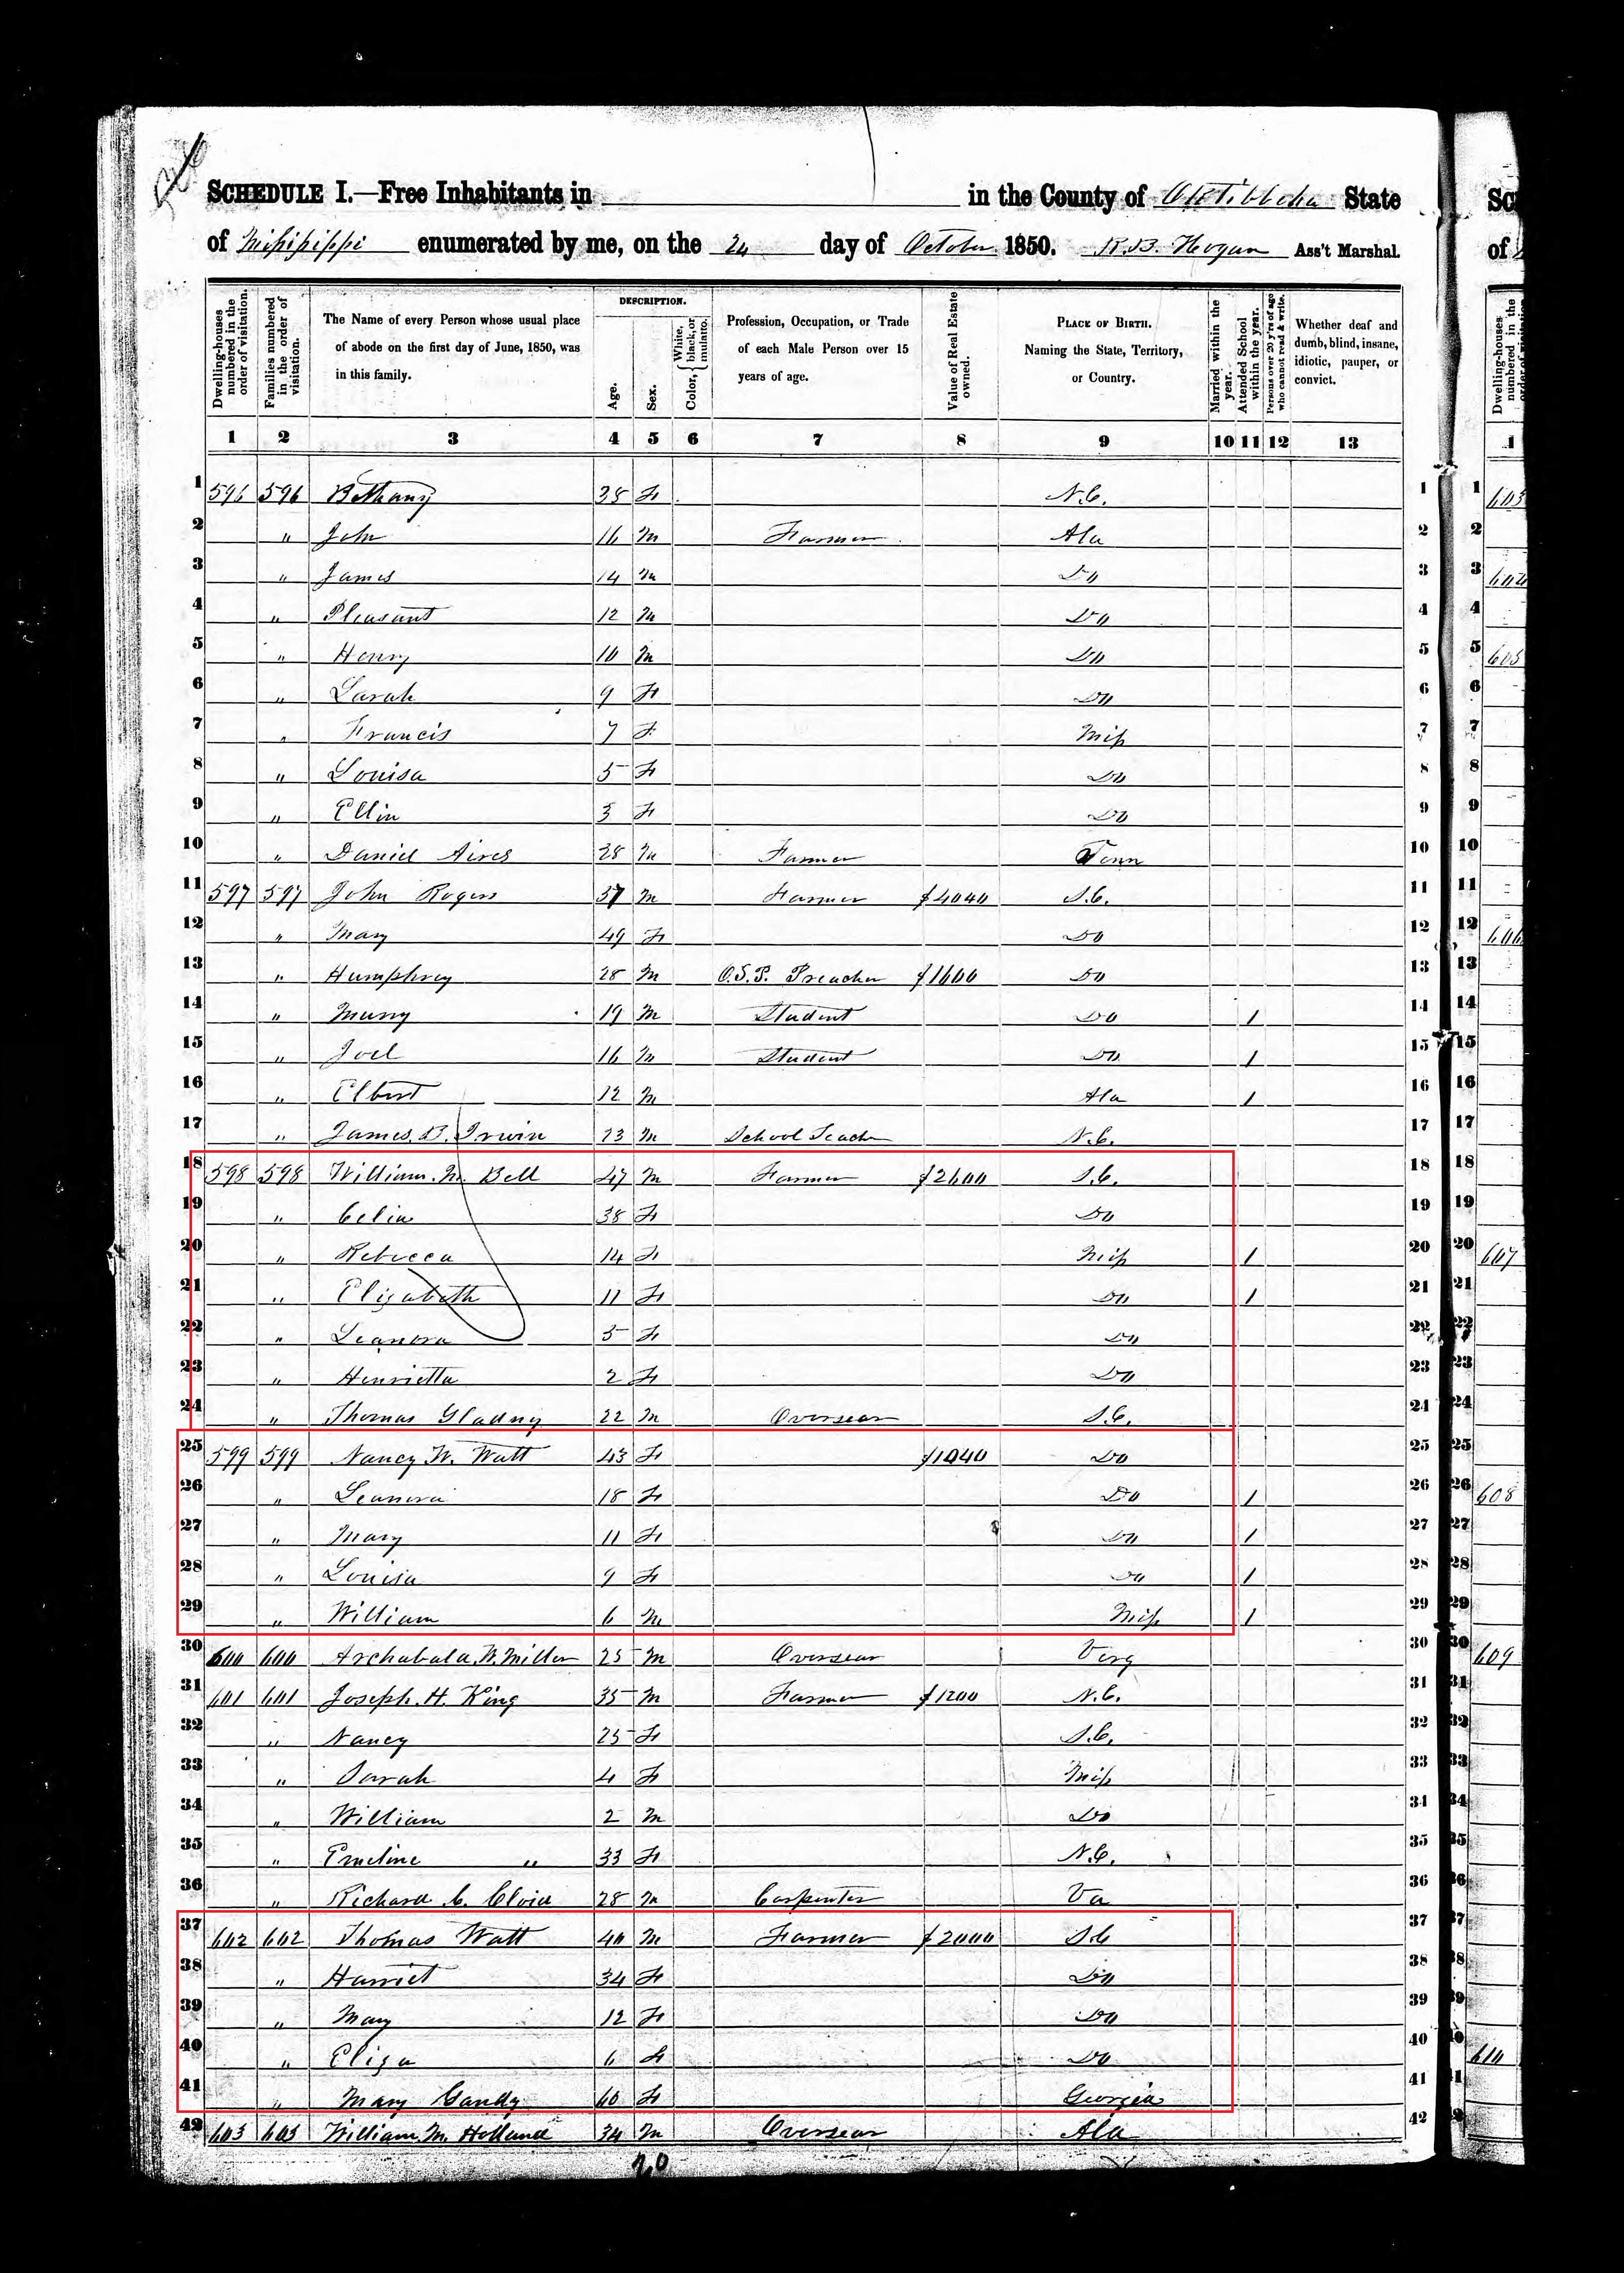 SCHEDULE I.—Free Inhabitants in in the County of Oktibbeha State
of Mississippi enumerated by me, on the 24 day of October 1850. R.B. Hogan Ass't Marshal.
Dwelling-houses numbered in the order of visitation.
Families numbered in the order of visitation.
The Name of every Person whose usual place of abode on the first day of June, 1850, was in this family.
DESCRIPTION.
Age.
Sex.
Color, { White, black, or mulatto.
Profession, Occupation, or Trade of each Male Person over 15 years of age.
Value of Real Estate owned.
PLACE OF BIRTH. Naming the State, Territory, or Country.
Married within the year.
Attended School within the year.
Persons over 20 y'rs of age who cannot read & write.
Whether deaf and dumb, blind, insane, idiotic, pauper, or convict.
1 2 3 4 5 6 7 8 9 10 11 12 13
1 596 596 Bethany 38 F N.C. 1
2 " John 16 M Farmer Ala 2
3 " James 14 M Do 3
4 " Pleasant 12 M Do 4
5 " Henry 10 M Do 5
6 " Sarah 9 F Do 6
7 " Francis 7 F Miss 7
8 " Louisa 5 F Do 8
9 " Ellin 3 F Do 9
10 " Daniel Aires 28 M Farmer Tenn 10
11 597 597 John Rogers 57 M Farmer $4040 S.C. 11
12 " Mary 49 F Do 12
13 " Humphrey 28 M O.S.P. Preacher $1600 Do 13
14 " Murry 19 M Student Do 1 14
15 " Joel 16 M Student Do 1 15
16 " Elbert 12 M Ala 1 16
17 " James. B. Irwin 23 M School Teacher N.C. 17
18 598 598 William. M. Bell 47 M Farmer $2600 S.C. 18
19 " Celia 38 F Do 19
20 " Rebecca 14 F Miss 1 20
21 " Elizabeth 11 F Do 1 21
22 " Leanora 5 F Do 22
23 " Henrietta 2 F Do 23
24 " Thomas Gladny 22 M Overseer S.C. 24
25 599 599 Nancy W. Watt 43 F $1040 Do 25
26 " Leanora 18 F Do 1 26
27 " Mary 11 F Do 1 27
28 " Louisa 9 F Do 1 28
29 " William 6 M Miss 1 29
30 600 600 Archabald. W. Miller 25 M Overseer Verg 30
31 601 601 Joseph. H. King 35 M Farmer $1200 N.C. 31
32 " Nancy 25 F S.C. 32
33 " Sarah 4 F Miss 33
34 " William 2 M Do 34
35 " Emeline " 33 F N.C. 35
36 " Richard C. 28 M Carpenter Va 36
37 602 602 Thomas Watt 40 M Farmer $2000 S.C 37
38 " Harriet 34 F Do 38
39 " Mary 12 F Do 39
40 " Eliza 6 F Do 40
41 " Mary Gandy 60 F Georgia 41
42 603 603 William. M. Holland 34 M Overseer Ala 42
20